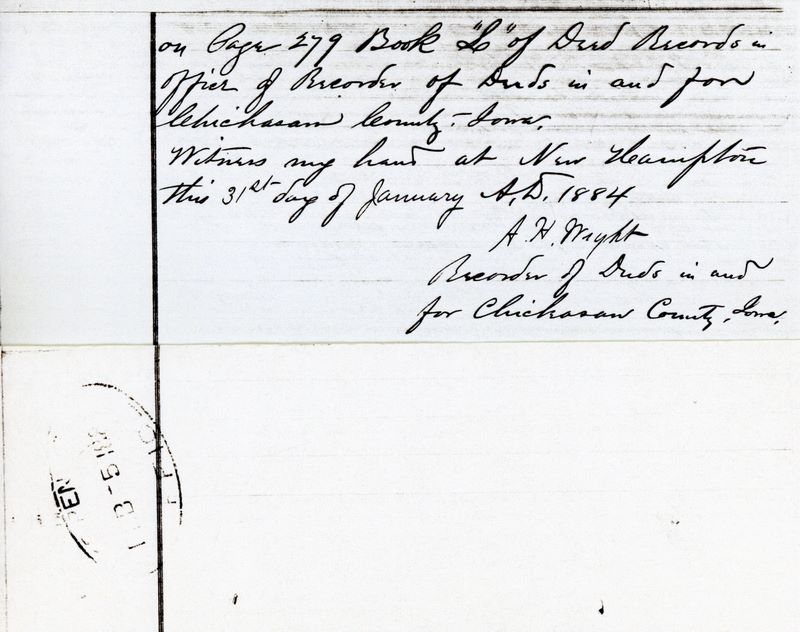 on Page 279 Book "L" of Deed Records in
office of Recorder of Deeds in and for
Chickasaw County, Iowa.
Witness my hand at New Hampton
this 31st day of January A.D. 1884
A. H. Wright
Recorder of Deeds in and
for Chickasaw County, Iowa.
PEN
B-5188